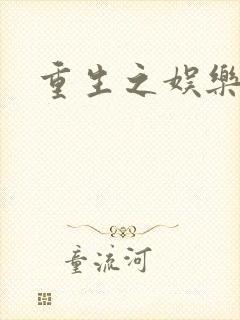 重生之娱樂
童流河